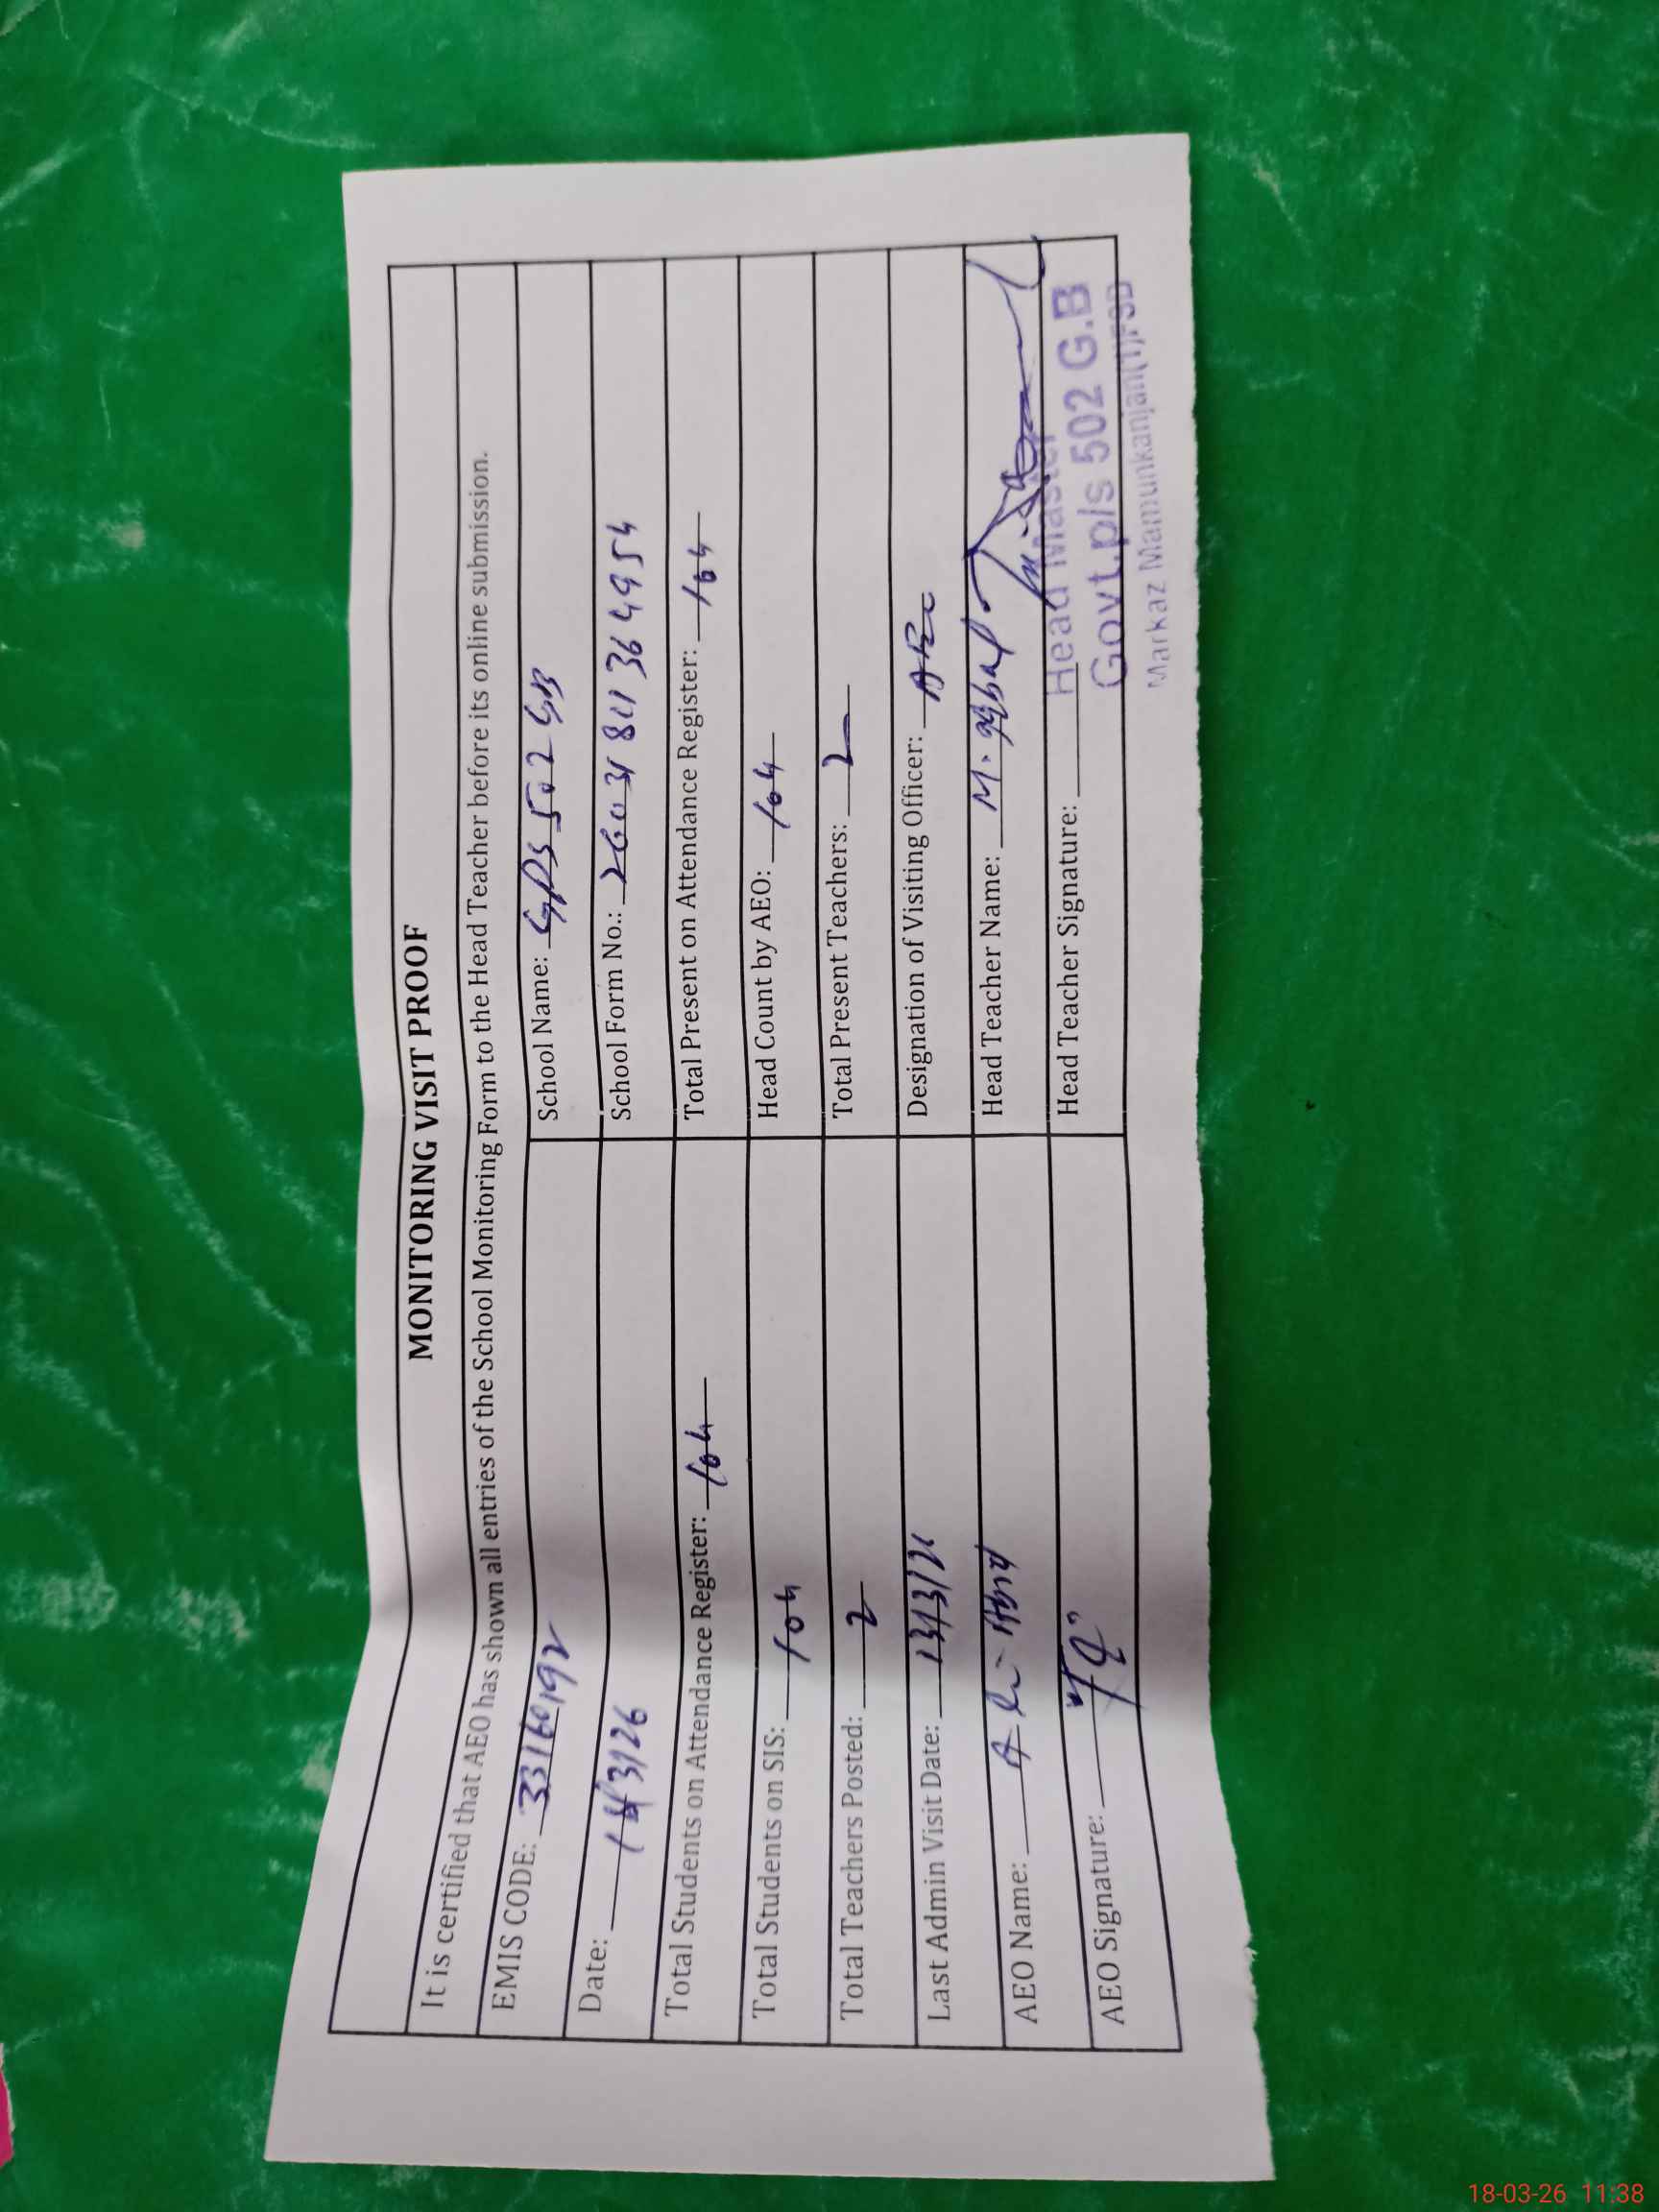 MONITORING VISIT PROOF
It is certified that AEO has shown all entries of the School Monitoring Form to the Head Teacher before its online submission.
EMIS CODE: 33160192
School Name: GPS 502 GB
Date: 18/3/26
School Form No.: 26031 364954
Total Students on Attendance Register: 104
Total Present on Attendance Register: 104
Total Students on SIS: 104
Head Count by AEO: 104
Total Teachers Posted: 2
Total Present Teachers: 2
Last Admin Visit Date: 13/3/26
Designation of Visiting Officer: AEO
AEO Name: Ali
Head Teacher Name: M. Iqbal
AEO Signature:
Head Teacher Signature:
Head Master
Govt.p/s 502 G.B
Markaz Mamunkanjan(1)FSD
18-03-26 11:38